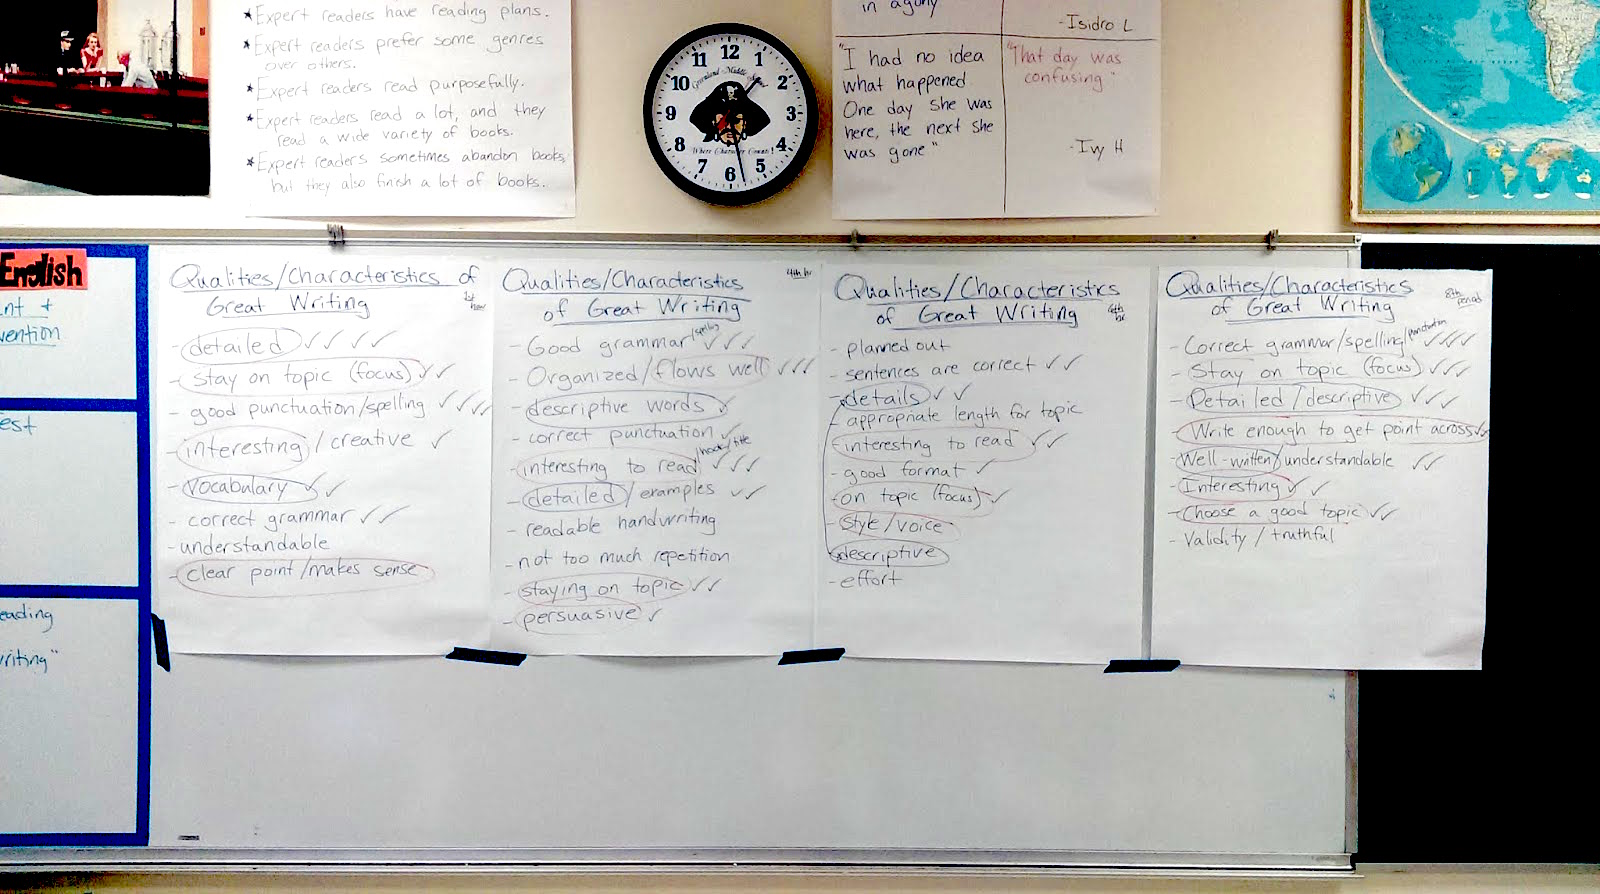 ★Expert readers have reading plans.
★Expert readers prefer some genres
over others.
★Expert readers read purposefully.
★Expert readers read a lot, and they
read a wide variety of books.
★Expert readers sometimes abandon books,
but they also finish a lot of books.
11 12 1
10 2
9 3
8 4
7 6 5
Middle
Where Character Counts!
in agony
-Isidro L
"I had no idea
what happened
One day she was
here, the next she
was gone"
"That day was
confusing"
-Ivy H
English
nt +
vention
est
eading
writing"
Qualities/Characteristics of
Great Writing
1st
hour
- detailed ✓✓✓✓
- Stay on topic (focus) ✓✓
- good punctuation/spelling ✓✓✓✓
- interesting / creative ✓
- Vocabulary ✓✓
- correct grammar ✓✓
- understandable
- clear point/makes sense
Qualities/Characteristics
of Great Writing
4th hr
- Good grammar/spelling ✓✓✓
- Organized/flows well ✓✓✓
- descriptive words ✓
- correct punctuation ✓
- interesting to read/hook/title ✓✓✓
- detailed/examples ✓✓
- readable handwriting
- not too much repetition
- staying on topic ✓✓
- persuasive ✓
Qualities/Characteristics
of Great Writing
hr
- planned out
- sentences are correct ✓✓
- details ✓✓
- appropriate length for topic
- interesting to read ✓✓
- good format ✓
- on topic (focus) ✓
- Style/voice
- descriptive
- effort
Qualities/Characteristics
of Great Writing
8th
period
- Correct grammar/spelling/punctuation ✓✓✓✓
- Stay on topic (focus) ✓✓✓
- Detailed/descriptive ✓✓✓
- Write enough to get point across ✓✓
- Well-written/understandable ✓✓
- Interesting ✓✓
- Choose a good topic ✓✓
- Validity / truthful